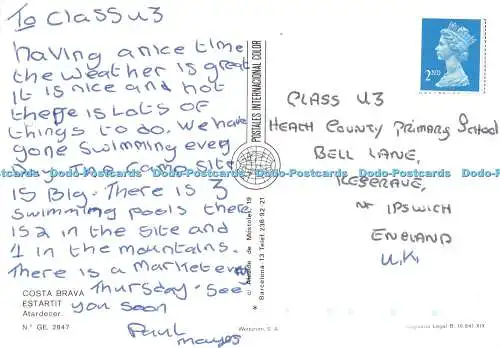 To Class U3
having a nice time
the weather is great
it is nice and hot
there is Lots of
things to do. We have
gone swimming every
Day. The Camp Site
is Big. There is 3
swimming pools there
is 2 in the site and
1 in the mountains.
There is a Market every
Thursday. See
you soon
Paul
mayes
COSTA BRAVA
ESTARTIT
Atardecer.
N.° GE. 2847
POSTALES INTERNACIONAL COLOR
Barcelona-13 Telef. 236 92 21
2ND
CLASS U3
HEATH COUNTY Primary School
BELL LANE,
KESGRAVE,
Nr IPSWICH
ENGLAND
U.K.
Dodo-Postcards Dodo-Postcards Dodo-Postcards Dodo-Postcards Dodo-Postcards